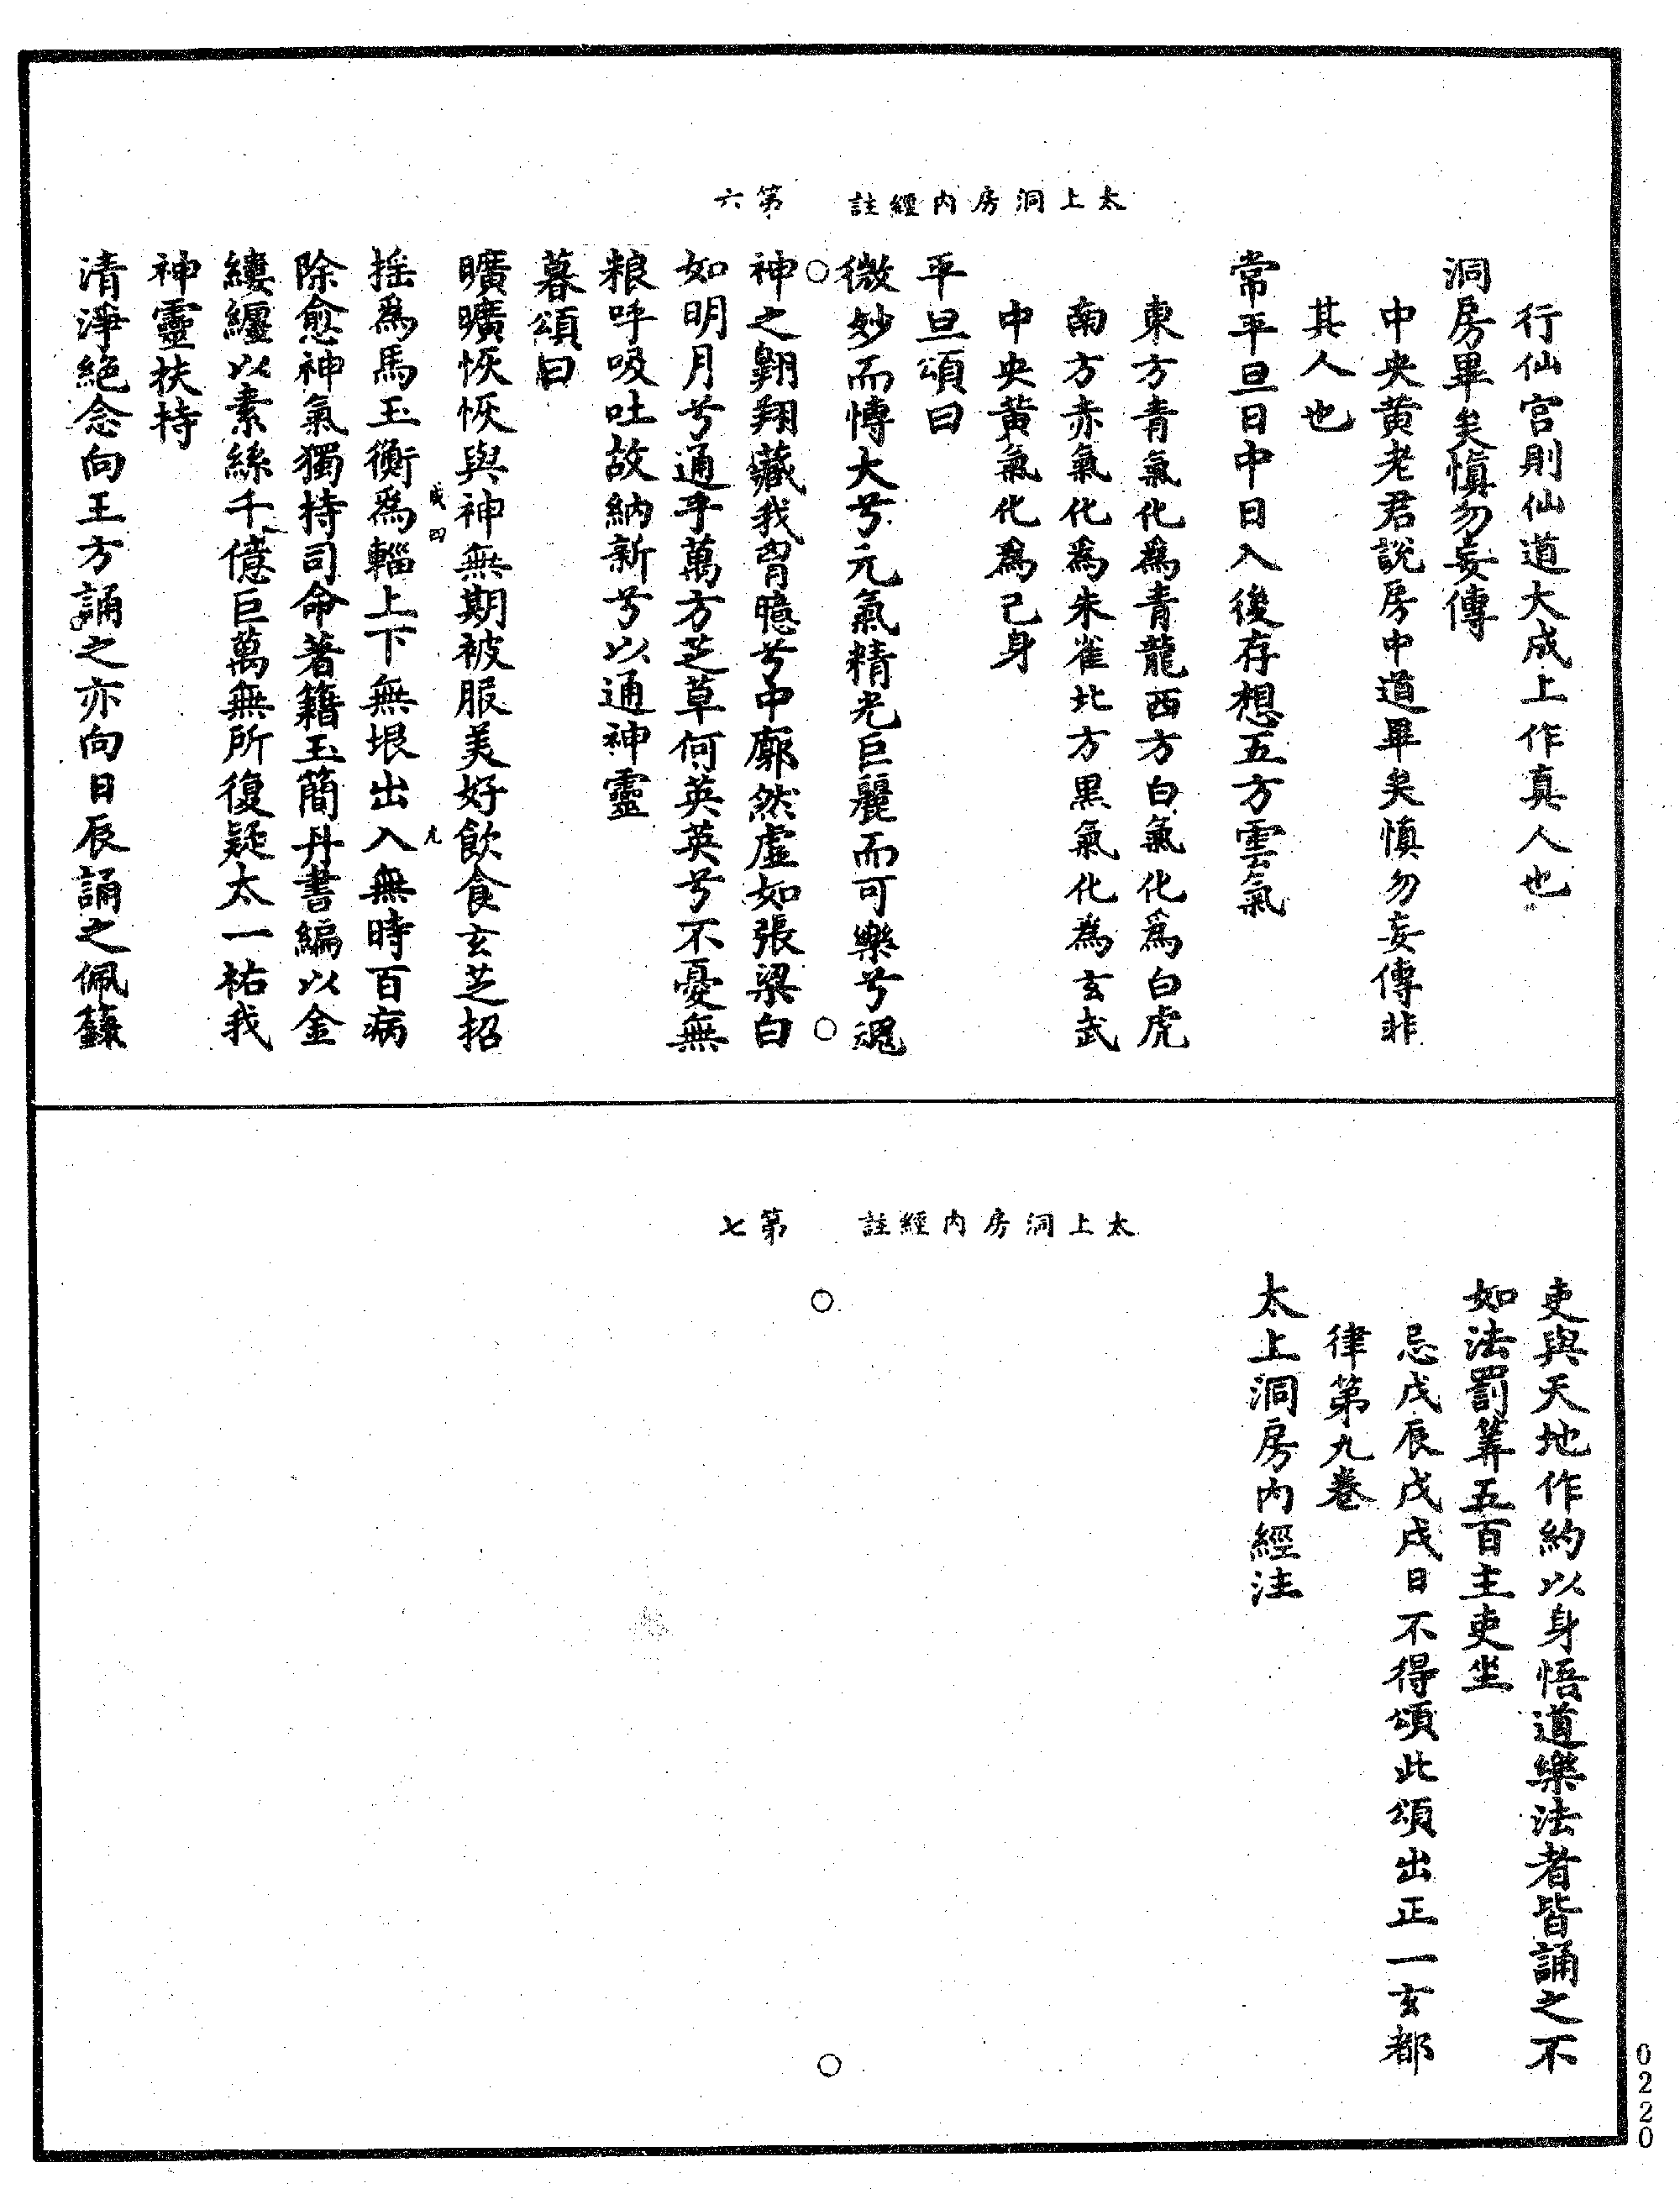 太上洞房内經註　第六
行仙宫則仙道大成上作真人也
洞房畢矣慎勿妄傳
中央黄老君說房中道畢矣慎勿妄傳非
其人也
常平旦日中日入後存想五方雲氣
東方青氣化爲青龍西方白氣化爲白虎
南方赤氣化爲朱雀北方黒氣化為玄武
中央黄氣化爲己身
平旦頌曰
微妙而愽大兮元氣精光巨麗而可樂兮魂
神之翺翔藏我胷臆兮中廓然虚如張梁白
如明月兮通乎萬方芝草何英英兮不憂無
粮呼吸吐故納新兮以通神靈
暮頌曰
曠曠恢恢與神無期被服美好飲食玄芝招
成四　九
摇爲馬玉衡爲輜上下無垠出入無時百病
除愈神氣獨持司命著籍玉簡丹書編以金
縷纒以素絲千億巨萬無所復疑太一祐我
神靈扶持
清淨絶念向王方誦之亦向日辰誦之佩籙
太上洞房内經註　第七
吏與天地作約以身悟道樂法者皆誦之不
如法罰筭五百主吏坐
忌戊辰戊戌日不得頌此頌出正一玄都
律第九卷
太上洞房内經注
0220